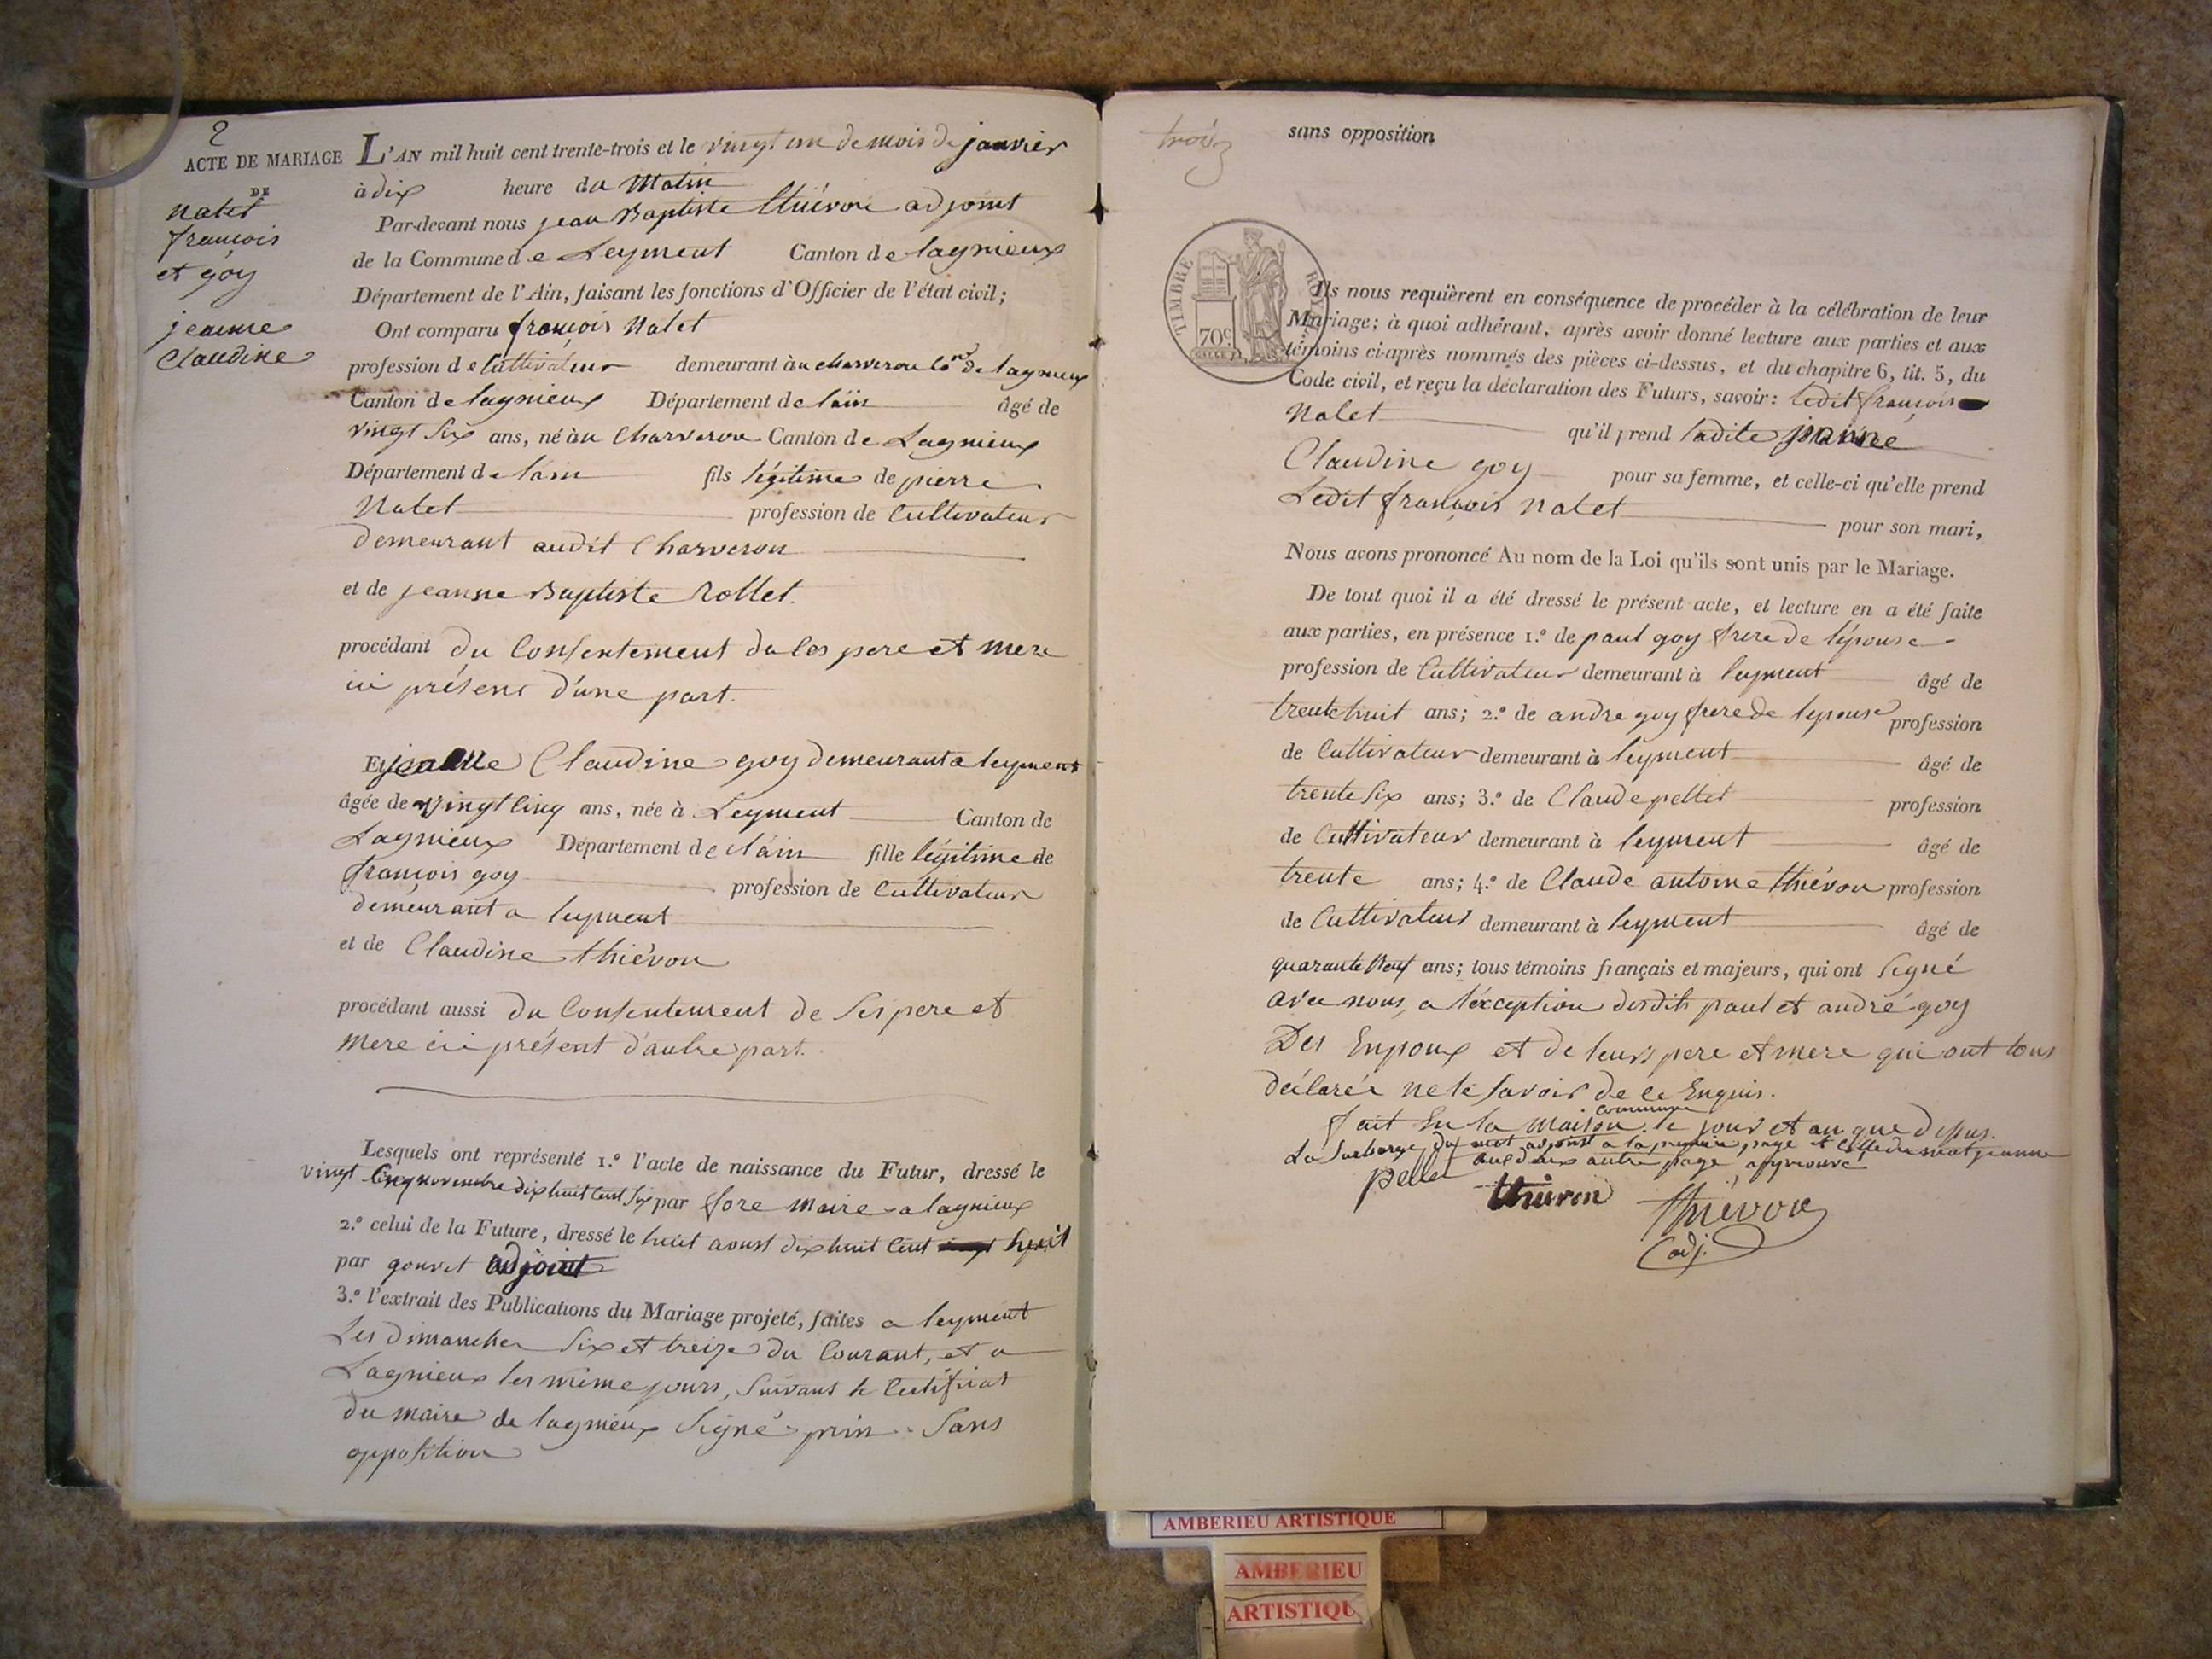 2
ACTE DE MARIAGE
DE
Natet
françois
et goy
jeanne
Claudine
L'AN mil huit cent trente-trois et le vingt un de mois de janvier
à dix heure du Matin
Par-devant nous jean Baptiste thiévon adjoint
de la Commune de Leyment Canton de lagnieux
Département de l'Ain, faisant les fonctions d'Officier de l'état civil;
Ont comparu françois Natet
profession de Cultivateur demeurant à au charveron de lagnieux
Canton de lagnieux Département de l'ain âgé de
vingt Six ans, né à au Charveron Canton de Lagnieux
Département de l'ain fils légitime de pierre
Natet profession de Cultivateur
demeurant audit Charveron
et de jeanne Baptiste Rollet.
procédant du Consentement de ses pere et mere
ici présens d'une part.
Et jeanne Claudine goy demeurant a leyment
âgée de vingt Cinq ans, née à Leyment Canton de
Lagnieux Département de l'ain fille légitime de
françois goy profession de Cultivateur
demeurant a leyment
et de Claudine thiévon
procédant aussi du Consentement de Ses pere et
mere ici présent d'autre part.
Lesquels ont représenté 1.º l'acte de naissance du Futur, dressé le
vingt Cinq novembre dix huit Cent Six par fore maire a lagnieux
2.º celui de la Future, dressé le huit aoust dix huit Cent huit
par gouvet adjoint
3.º l'extrait des Publications du Mariage projeté, faites a leyment
Les dimanches Six et treize du Courant, et a
Lagnieux les mème jours, Suivant le Certificat
du maire de lagnieux Signé prin Sans
opposition
trois
sans opposition
TIMBRE ROYAL
70c
Ils nous requièrent en conséquence de procéder à la célébration de leur
Mariage; à quoi adhérant, après avoir donné lecture aux parties et aux
témoins ci-après nommés des pièces ci-dessus, et du chapitre 6, tit. 5, du
Code civil, et reçu la déclaration des Futurs, savoir: ledit françois
Natet qu'il prend ladite jeanne
Claudine goy pour sa femme, et celle-ci qu'elle prend
Ledit françois Natet pour son mari,
Nous avons prononcé Au nom de la Loi qu'ils sont unis par le Mariage.
De tout quoi il a été dressé le présent acte, et lecture en a été faite
aux parties, en présence 1.º de paul goy frere de l'épouse
profession de Cultivateur demeurant à leyment âgé de
trente huit ans; 2.º de andre goy frere de lepouse profession
de Cultivateur demeurant à leyment âgé de
trente Six ans; 3.º de Claude pellet profession
de Cultivateur demeurant à leyment âgé de
trente ans; 4.º de Claude antoine thiévon profession
de Cultivateur demeurant à leyment âgé de
quarante Neuf ans; tous témoins français et majeurs, qui ont Signé
avec nous, a l'éxception desdits paul et andré goy
Des Enpoux et de leurs pere et mere qui ont tous
déclarée ne le Savoir de ce Enquis.
fait En la maison commune le jour et an que dessus.
La Surcharge du mot adjoint a la premiere page et celle du mot jeanne
aux deux autre page approuvé
Pellet thievon Thiévon
adj.
AMBERIEU ARTISTIQUE
AMBERIEU
ARTISTIQU